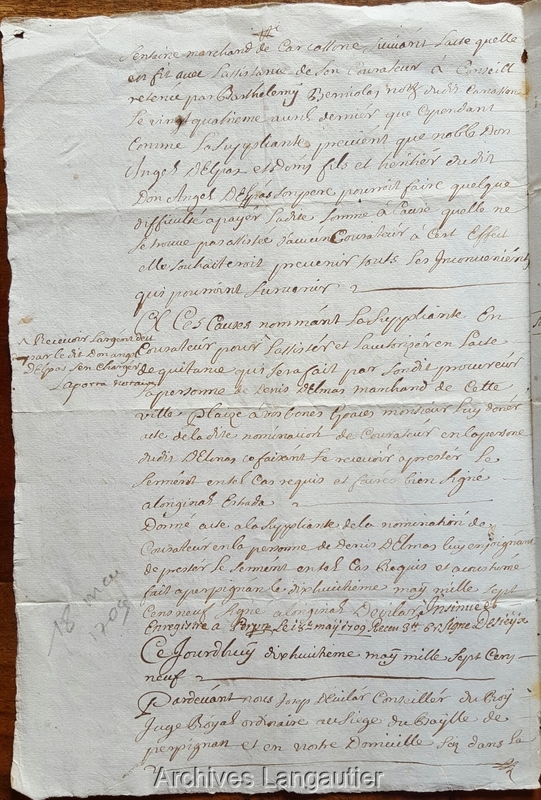 Senteire marchand de Carcassone, suivant lacte quelle
en fit avec lassistance de son Curateur à Conseill
retenu par Barthelemy notre dudit Carcassone
le vingt quatrieme avril dernier que Cependant
Comme la Suppliante previent que noble Don
Angel DEspax et fils et heritier dudit
Don Angel DEspas son pere pourroit faire quelque
difficulté a payer ladite somme à Cause quelle ne
se trouve pas assistée daucun Courateur à Cest Effect
elle souhaiteroit prevenir touts ses Inconvenients
qui pourroint survenir
A Ces Causes nommant la Suppliante En
Courateur pour lassister et lautorizer en lacte
de quitance qui sera fait par sondit procureur
la personne de Denis DElmas marchand de Cette
ville Plaize à vos bones graces monsieur luy doner
acte de la dite nomination de Courateur en la persone
dudit DElmas ce faisant le recevoir a prester le
serment en tel cas requis et faires bien Signé
a loriginal Estrada
Donné acte a la Suppliante de la nomination de
Courateur en la persone de Denis DElmas luy enjoignant
de prester le serment en tel Cas Requis et acoustume
fait a perpignan le dixhuitieme may mille sept
Cens neuf Signé a loriginal Devilar Insinué &
Enregistré a Perpn le 18e may 1709 Receu 3tt 6s Signé
Ce Jourdhuy dixhuitieme may mille sept Cens
neuf
Pardevant nous Josep DEvilar Conseiller du Roy
Juge Royal ordinaire au Siege du Baylle de
perpignan et en notre Domicille Sis dans la
Recevoir largent deu
par ledit Don angel
DEspas Sen Charger
18 mai
1709
Archives Langautier